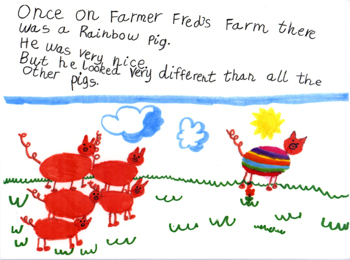 Once on Farmer Fred's Farm there
was a Rainbow Pig.
He was very nice.
But he looked very different than all the
Other pigs.